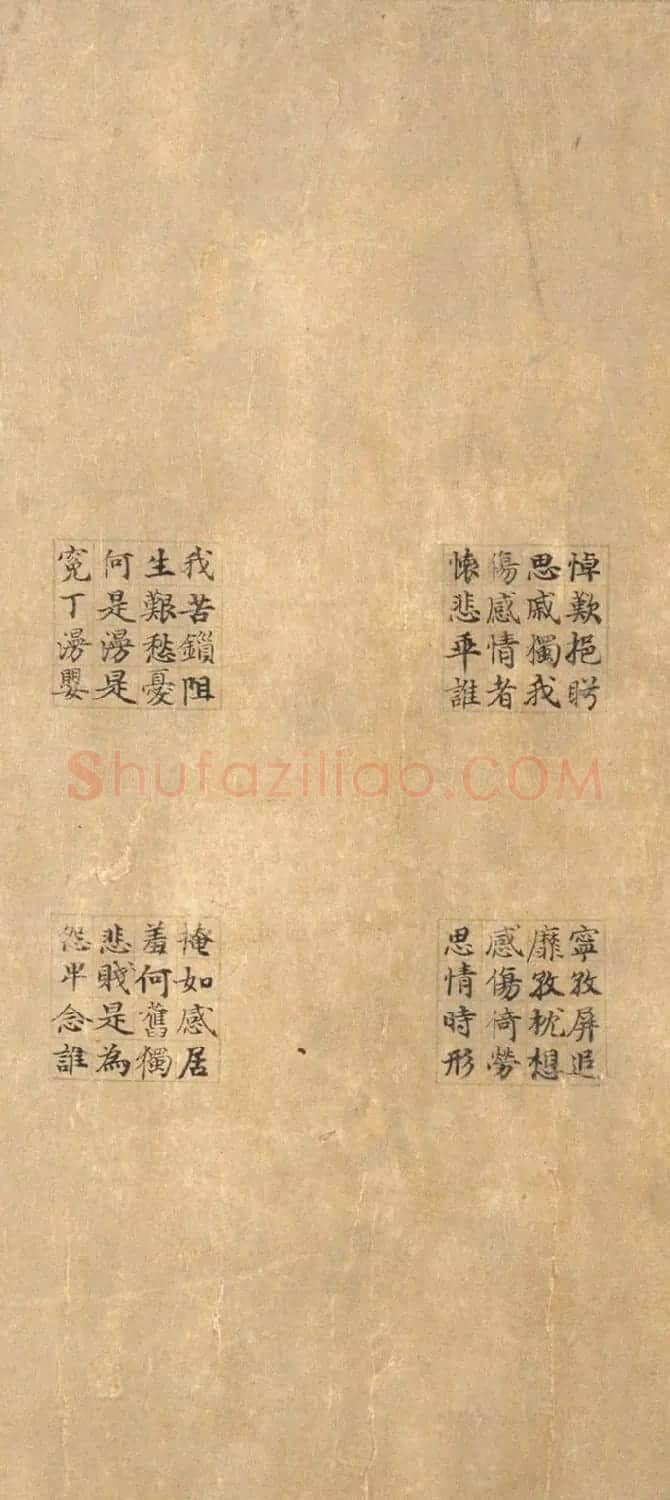 悼歎挹眄
思戚獨我
傷感情者
懷悲平誰
我苦鎖阻
生艱愁憂
何是漫是
冤丁漫嬰
Shufaziliao.COM
寧孜屏追
靡孜枕想
感傷倚勞
思情時形
掩如感居
羞何舊獨
悲戝是為
怨半念誰